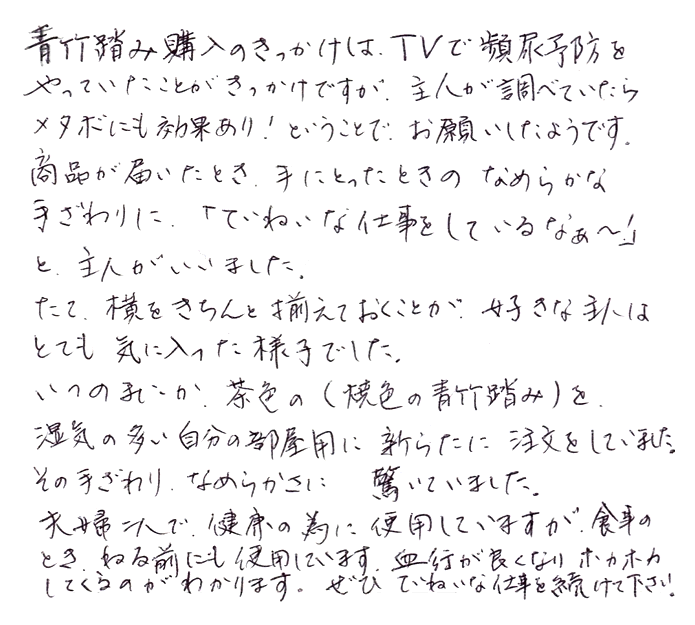 青竹踏み購入のきっかけは、TVで頻尿予防を
やっていたことがきっかけですが、主人が調べていたら
メタボにも効果あり！ということで、お願いしたようです。
商品が届いたとき、手にとったときの なめらかな
手ざわりに、「ていねいな仕事をしているなぁ〜！」
と、主人がいいました。
たて、横をきちんと揃えておくことが、好きな主人は
とても 気に入った様子でした。
いつのまにか、茶色の（焼色の青竹踏み）を、
湿気の多い自分の部屋用に 新らたに 注文をしていました。
その手ざわり、なめらかさに 驚いていました。
夫婦二人で、健康の為に 使用していますが、食事の
とき、ねる前にも使用しています。血行が良くなり ホカホカ
してくるのがわかります。ぜひ ていねいな仕事を続けて下さい！